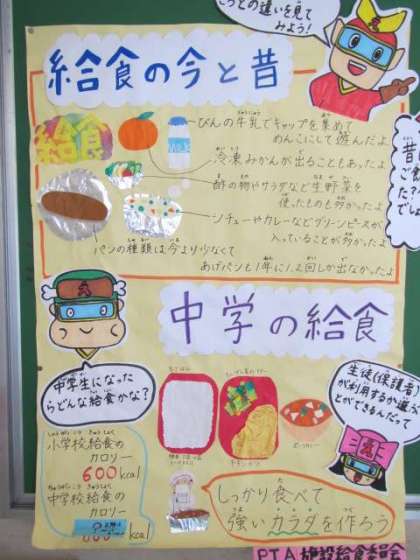 との違いを見て
みよう!
給食の今と昔
給食
びんの牛乳でキャップを集めて
めんこにして遊んだよ
冷凍みかんが出ることもあったよ
酢の物やサラダなど生野菜を
使ったものも多かったよ
シチューやカレーなどグリーンピースが
入っていることが多かったよ
パンの種類は今より少なくて
あげパンも1年に1,2回しか出なかったよ
昔
中学の給食
中学生になった
らどんな給食かな?
生徒(保護者)
が利用するか選ぶこ
とができるんだって
小学校給食の
カロリー
600kcal
中学校給食の
カロリー
kcal
しっかり食べて
強いカラダを作ろう
PTA 施設給食委員会